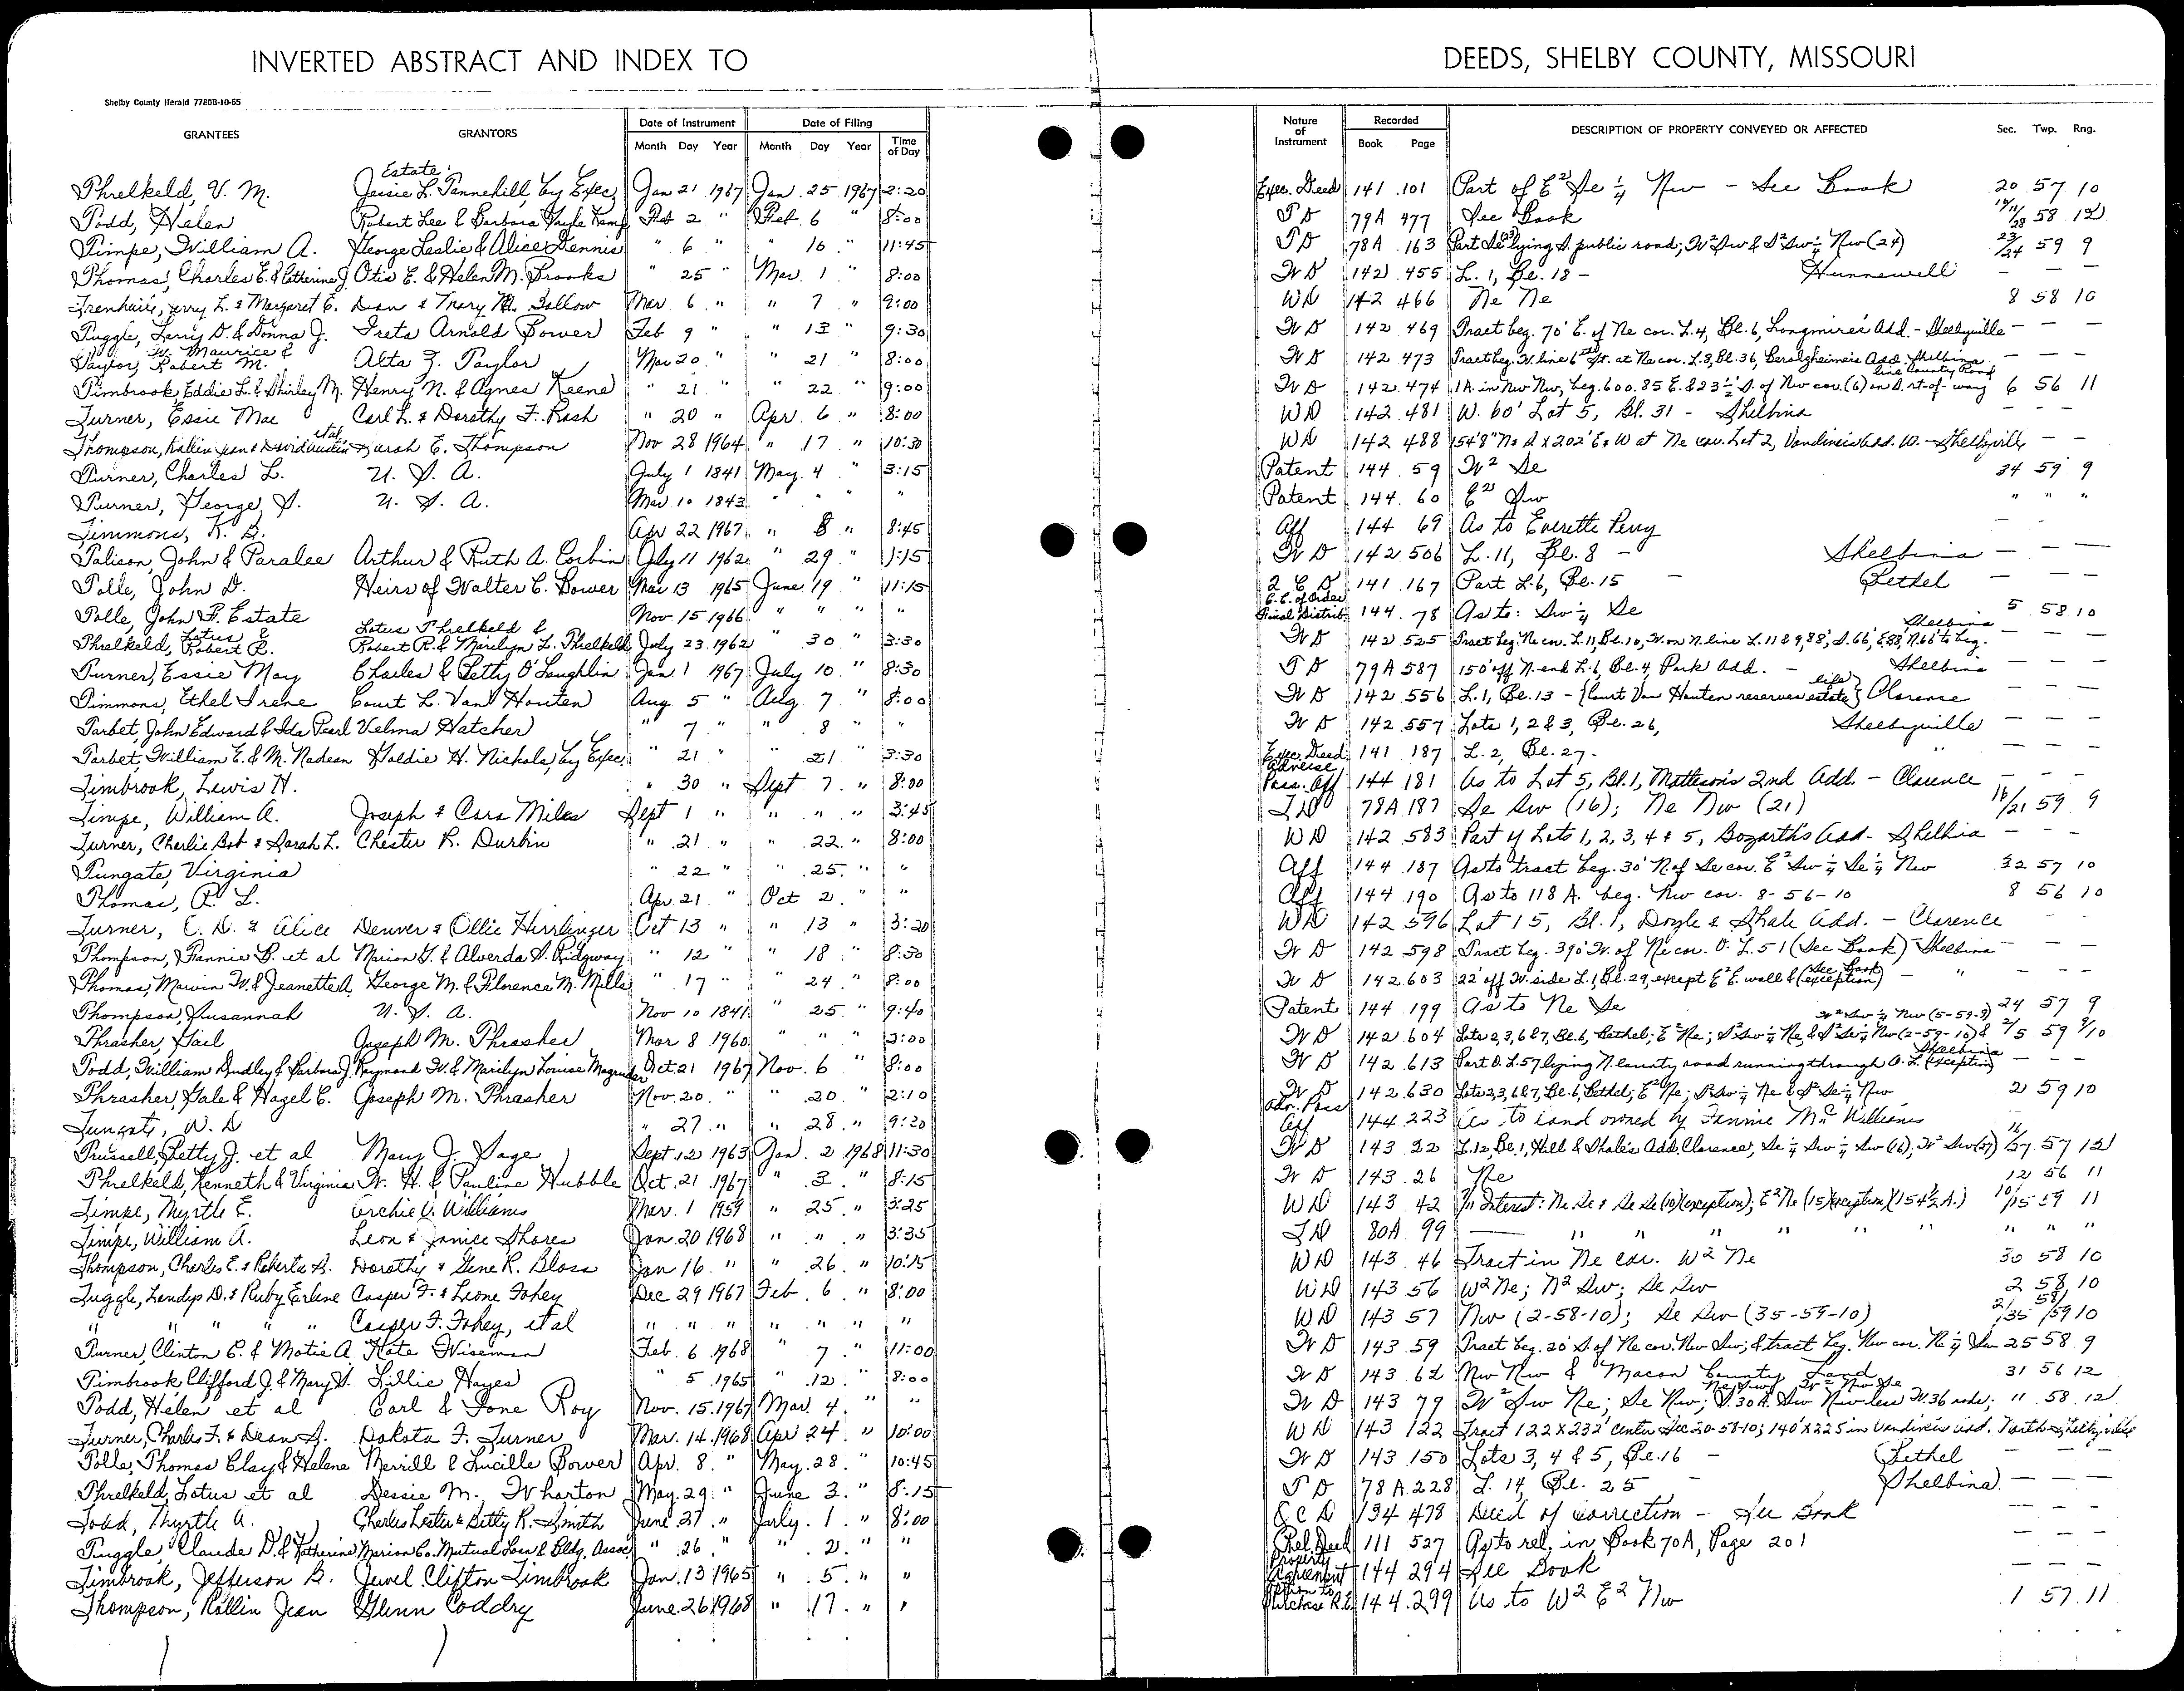 INVERTED ABSTRACT AND INDEX TO DEEDS, SHELBY COUNTY, MISSOURI
Shelby County Herald 7780B-10-65
GRANTEES GRANTORS Date of Instrument Date of Filing Nature of Instrument Recorded DESCRIPTION OF PROPERTY CONVEYED OR AFFECTED Sec. Twp. Rng.
Month Day Year Month Day Year Time of Day Book Page
Estate
Threlkeld, V. M. Jessie L. Tannehill, by Exec. Jan 21 1967 Jan. 25 1967 2:20 Exec. Deed 141 101 Part of E² Se ¼ Nw - See Book 20 57 10
Todd, Helen Robert Lee & Barbara Gayle Kemp Feb 2 " Feb. 6 " 8:00 T D 79A 477 See Book 58 12
Timpe, William A. George Leslie & Alice Gennis " 6 " " 16 " 11:45 T D 78A 163 Part Se (23) lying S. public road; W² Sw & S² Sw ¼ Nw (24) 23/24 59 9
Thomas, Charles E. & Catherine J. Otis E. & Helen M. Brooks " 25 " Mar. 1 " 8:00 W D 142 455 L. 1, Bl. 18 - Hunnewell — — —
Trenhaile, Jerry L. & Margaret E. Dean & Mary M. Tallow Mar. 6 " " 7 " 9:00 WD 142 466 Ne Ne 8 58 10
Tuggle, Larry D. & Donna J. Treta Arnold Bower Feb 9 " " 13 " 9:30 W D 142 469 Tract beg. 70' E. of Ne cor. L. 4, Bl. 6, Longmire's Add. - Shelbyville — — —
Taylor, W. Maurice & Robert M. Alta Z. Taylor Mar 20 " " 21 " 8:00 W D 142 473 Tract beg. W. line 6th St. at Ne cor. L. 3, Bl. 36, Berolzheimer's Add. Shelbina — — —
Timbrook, Eddie L. & Shirley M. Henry N. & Agnes Keene " 21 " 22 " 9:00 W D 142 474 1A. in Nw Nw, beg. 600.85 E. & 23½' S. of Nw cor. (6) on S. rt.-of-way line County Road 6 56 11
Turner, Essie Mae Carl L. & Dorothy F. Rash " 20 " Apr. 6 " 8:00 WD 142 481 W. 60' Lot 5, Bl. 31 - Shelbina — — —
Thompson, Rallin Jean & David Austin et al Sarah E. Thompson Nov 28 1964 " 17 " 10:30 WD 142 488 154'8" N & S x 202' E & W at Ne cor. Lot 2, Vandiver's Add. W. - Shelbyville — —
Turner, Charles L. U. S. A. July 1 1841 May. 4 " 3:15 Patent 144 59 W² Se 34 59 9
Turner, George S. U. S. A. Mar 10 1843 " " " " Patent 144 60 E² Sw " " "
Timmons, K. B. Apr 22 1967 " 8 " 8:45 Aff 144 69 As to Everette Perry
Talison, John & Paralee Arthur & Ruth A. Corbin July 11 1962 " 29 " 1:15 W D 142 506 L. 11, Bl. 8 - Shelbina — — —
Tolle, John D. Heirs of Walter C. Bower Mar 13 1965 June 19 " 11:15 Q C D 141 167 Part L. 6, Bl. 15 - Bethel — — —
Tolle, John F. Estate Nov 15 1966 " " " " C.C. of Order Final Distrib. 144 78 As to: Sw ¼ Se 5 58 10
Threlkeld, Lotus & Robert R. Lotus Threlkeld & Robert R. & Marilyn L. Threlkeld July 23 1962 " 30 " 3:30 W D 142 525 Tract beg. Ne cor. L. 11, Bl. 10, W. on N. line L. 11 & 9, 88', S. 66', E. 88', N. 66' to beg. Shelbina — — —
Turner, Essie May Charles & Betty O'Laughlin Jan 1 1967 July 10 " 8:30 T D 79A 587 150' off N. end L. 1, Bl. 4, Park Add. - Shelbina — — —
Timmons, Ethel Irene Court L. Van Houten Aug 5 " Aug. 7 " 8:00 W D 142 556 L. 1, Bl. 13 - {Court Van Houten reserves life estate} Clarence — — —
Tarbet, John Edward & Ida Pearl Velma Hatcher " 7 " " 8 " " W D 142 557 Lots 1, 2 & 3, Bl. 26, Shelbyville — — —
Tarbet, William E. & M. Nadean Goldie H. Nichols, by Exec. " 21 " " 21 3:30 Exec. Deed 141 187 L. 2, Bl. 27. " — — —
Timbrook, Lewis H. " 30 " Sept 7 " 8:00 Adverse Poss. Aff 144 181 As to Lot 5, Bl. 1, Matteson's 2nd Add. - Clarence — — —
Timpe, William A. Joseph & Cora Miles Sept 1 " " " " 3:45 T D 78A 187 Se Sw (16); Ne Nw (21) 16/21 59 9
Turner, Charlie Bob & Sarah L. Chester R. Durbin " 21 " " 22 " 8:00 WD 142 583 Part of Lots 1, 2, 3, 4 & 5, Bozarth's Add - Shelbina — — —
Tungate, Virginia " 22 " " 25 " " Aff 144 187 As to tract beg. 30' N. of Se cor. E² Sw ¼ Se ¼ Nw 32 57 10
Thomas, R. L. Apr 21 " Oct 2 " " Aff 144 190 As to 118 A. beg. Nw cor. 8-56-10 8 56 10
Turner, C. D. & Alice Denver & Ollie Hirrlinger Oct 13 " " 13 " 3:20 WD 142 596 Lot 15, Bl. 1, Doyle & Shale Add. - Clarence — —
Thompson, Fannie B. et al Marion G. & Alverda S. Ridgway " 12 " " 18 " 8:30 W D 142 598 Tract beg. 390' W. of Ne cor. O. L. 51 (See Book) Shelbina — — —
Thomas, Marvin W. & Jeanette A. George M. & Florence M. Mills " 17 " " 24 " 8:00 W D 142 603 22' off W. side L. 1, Bl. 29, except E² E. wall & (See Book exception) - " — — —
Thompson, Susannah U. S. A. Nov 10 1841 " 25 " 9:40 Patent 144 199 As to Ne Se 24 57 9
Thrasher, Gail Joseph M. Thrasher Mar 8 1960 " " " 3:00 W D 142 604 Lots 2, 3, 6 & 7, Bl. 6, Bethel; E² Ne; S² Sw ¼ Ne & S² Se ¼ Nw (2-59-10) & W² Sw ¼ Nw (5-59-9) 2/5 59 9/10
Todd, William Dudley & Barbara J. Raymond W. & Marilyn Louise Magruder Oct. 21 1967 Nov. 6 " 8:00 W D 142 613 Part O. L. 57 lying N. county road running through O. L. (exception) Shelbina — — —
Thrasher, Gale & Hazel C. Joseph M. Thrasher Nov. 20 " " 20 " 2:10 W D 142 630 Lots 2, 3, 6 & 7, Bl. 6, Bethel; E² Ne; S² Sw ¼ Ne & S² Se ¼ Nw 2 59 10
Tungate, W. D " 27 " " 28 " 9:20 Adv. Poss Aff 144 223 As to land owned by Fannie Mc Williams
Trussell, Betty J. et al Mary J. Sage Sept. 12 1963 Jan. 2 1968 11:30 W D 143 22 L. 12, Bl. 1, Hill & Shale's Add. Clarence, Se ¼ Sw ¼ Sw (16); W² Sw (27) 16/27 57 12
Threlkeld, Kenneth & Virginia W. H. & Pauline Hubble Oct. 21 1967 " 3 " 8:15 W D 143 26 Ne 12 56 11
Timpe, Myrtle E. Archie V. Williams Mar. 1 1959 " 25 " 3:25 WD 143 42 Interest: Ne Se & Se Se (10) (exception); E² Ne (15) (exception) (154½ A.) 10/15 59 11
Timpe, William A. Leon & Janice Shores Jan. 20 1968 " " " 3:35 T D 80A 99 — " " " " " " " "
Thompson, Charles E. & Roberta B. Dorothy & Gene R. Bloss Jan 16 " " 26 " 10:15 WD 143 46 Tract in Ne cor. W² Ne 30 58 10
Tuggle, Landys D. & Ruby Erlene Casper F. & Leone Fohey Dec 29 1967 Feb. 6 " 8:00 WD 143 56 W² Ne; N² Sw; Se Sw 2 58 10
" " " " Casper F. Fohey, et al " " " " " " " WD 143 57 Nw (2-58-10); Se Sw (35-59-10) 2/35 58/59 10
Turner, Clinton C. & Motie A. Kate Wiseman Feb. 6 1968 " 7 " 11:00 W D 143 59 Tract beg. 20' S. of Ne cor. Nw Sw; & tract beg. Nw cor. Ne ¼ Sw 25 58 9
Timbrook Clifford J. & Mary S. Lillie Hayes " 5 1965 " 12 " 8:00 W D 143 62 Nw Nw & Macon County Land 31 56 12
Todd, Helen et al Carl & Ione Roy Nov. 15 1967 Mar. 4 " " W D 143 79 W² Sw Ne; Se Nw; S. 30 A. Sw Nw less W. 36 rods; Ne Sw; W² Nw Se 11 58 12
Turner, Charles F. & Dean S. Dakota F. Turner Mar. 14 1968 Apr 24 " 10:00 WD 143 122 Tract 122 x 232' center Sec 20-58-10; 140' x 225 in Vandiver's Add. North Shelbyville
Tolle, Thomas Clay & Helene Merrill & Lucille Bower Apr. 8 " May 28 " 10:45 W D 143 150 Lots 3, 4 & 5, Bl. 16 - Bethel — — —
Threlkeld, Lotus et al Dessie M. Wharton May 29 " June 3 " 8:15 T D 78A 228 L. 14, Bl. 25 - Shelbina — — —
Todd, Myrtle A. Charles Lester & Betty R. Smith June 27 " July 1 " 8:00 Q C D 134 478 Deed of correction - See Book — — —
Tuggle, Claude D. & Katherine Marion Co. Mutual Loan & Bldg. Assoc. " 26 " " 2 " " Rel. Deed 111 527 As to rel. in Book 70A, Page 201 — — —
Timbrook, Jefferson B. Jewel Clifton Timbrook Jan. 13 1965 " 5 " " Property Agreement 144 294 See Book — — —
Thompson, Rallin Jean Glenn Coddry June 26 1968 " 17 " " Option to Purchase R.E. 144 299 As to W² E² Nw 1 57 11